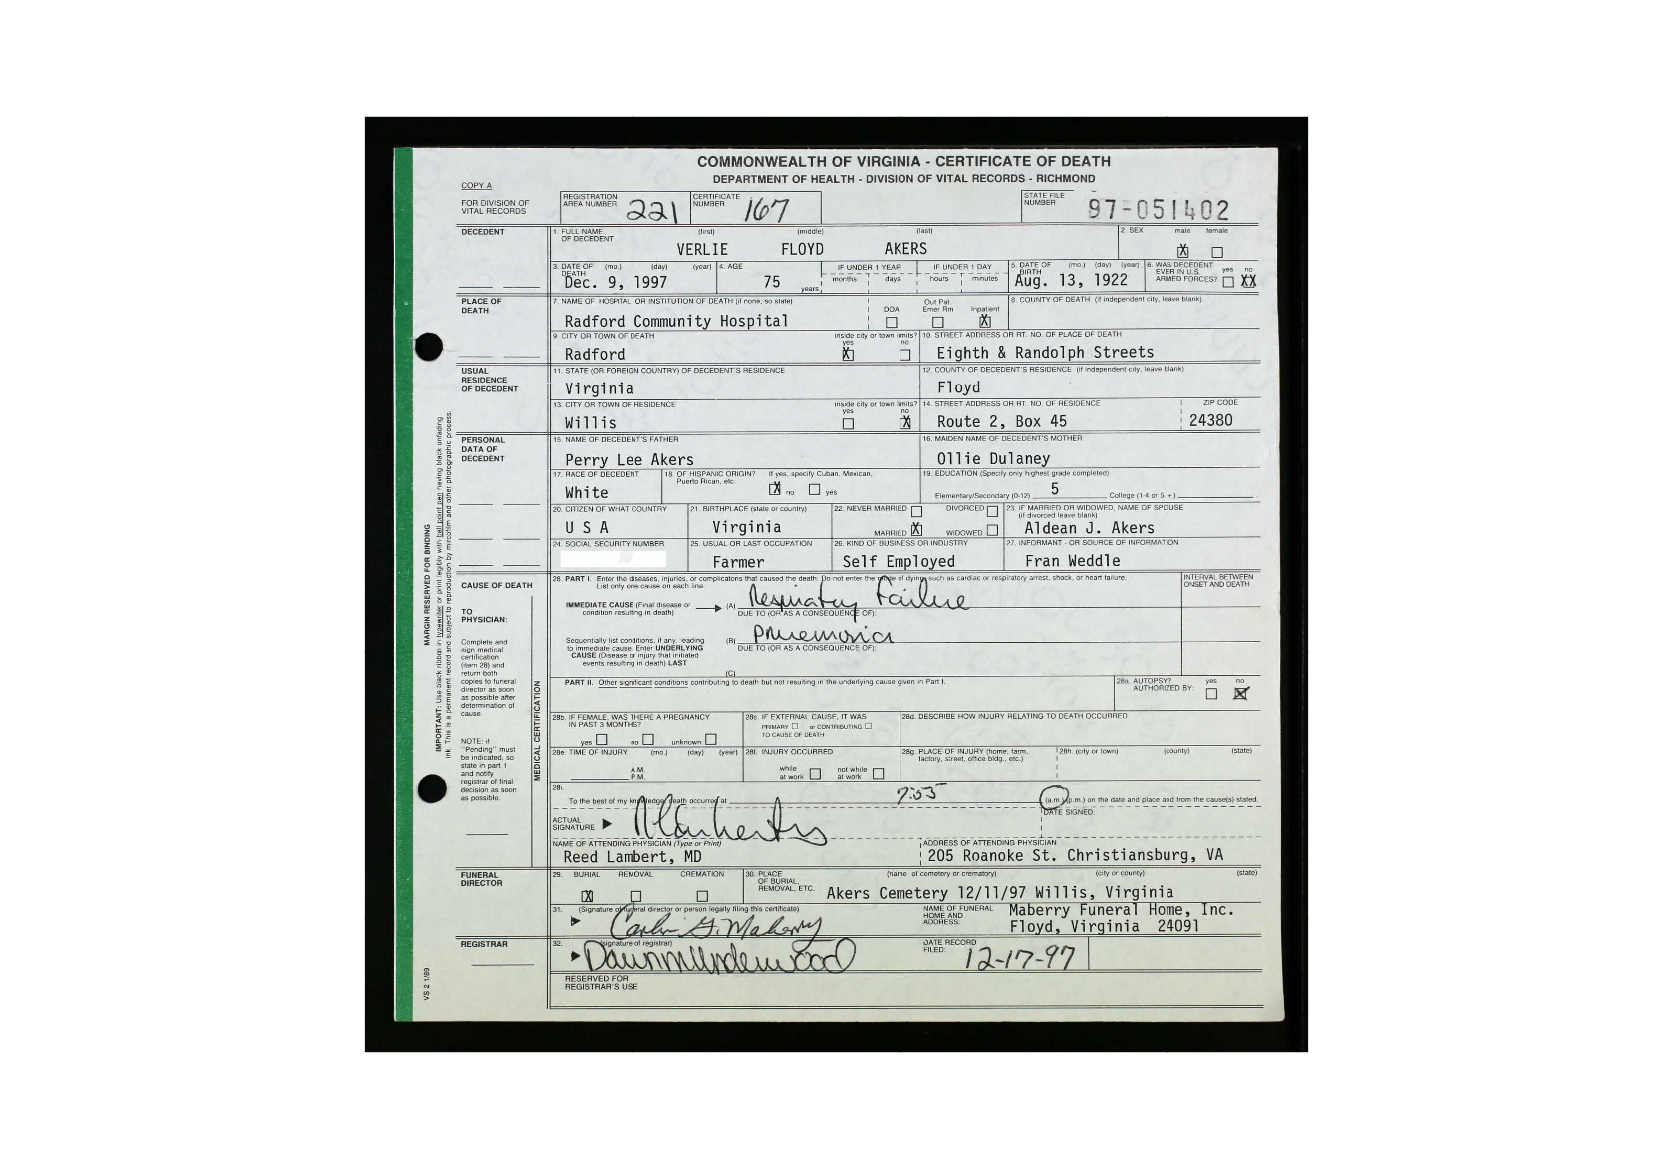 COMMONWEALTH OF VIRGINIA - CERTIFICATE OF DEATH
DEPARTMENT OF HEALTH - DIVISION OF VITAL RECORDS - RICHMOND
COPY A
FOR DIVISION OF VITAL RECORDS
REGISTRATION AREA NUMBER 221
CERTIFICATE NUMBER 167
STATE FILE NUMBER 97-051402
DECEDENT
1. FULL NAME OF DECEDENT (first) (middle) (last)
VERLIE FLOYD AKERS
2. SEX male female
X
3. DATE OF DEATH (mo.) (day) (year)
Dec. 9, 1997
4. AGE 75 years
IF UNDER 1 YEAR months days
IF UNDER 1 DAY hours minutes
5. DATE OF BIRTH (mo.) (day) (year)
Aug. 13, 1922
6. WAS DECEDENT EVER IN U.S. ARMED FORCES? yes no
XX
PLACE OF DEATH
7. NAME OF HOSPITAL OR INSTITUTION OF DEATH (if none, so state)
Radford Community Hospital
DOA Out Pat. Emer Rm Inpatient
X
8. COUNTY OF DEATH (if independent city, leave blank)
9. CITY OR TOWN OF DEATH inside city or town limits? yes no
Radford X
10. STREET ADDRESS OR RT. NO. OF PLACE OF DEATH
Eighth & Randolph Streets
USUAL RESIDENCE OF DECEDENT
11. STATE (OR FOREIGN COUNTRY) OF DECEDENT'S RESIDENCE
Virginia
12. COUNTY OF DECEDENT'S RESIDENCE (if independent city, leave blank)
Floyd
13. CITY OR TOWN OF RESIDENCE inside city or town limits? yes no
Willis X
14. STREET ADDRESS OR RT. NO. OF RESIDENCE ZIP CODE
Route 2, Box 45 24380
PERSONAL DATA OF DECEDENT
15. NAME OF DECEDENT'S FATHER
Perry Lee Akers
16. MAIDEN NAME OF DECEDENT'S MOTHER
Ollie Dulaney
17. RACE OF DECEDENT
White
18. OF HISPANIC ORIGIN? If yes, specify Cuban, Mexican, Puerto Rican, etc.
X no yes
19. EDUCATION (Specify only highest grade completed)
Elementary/Secondary (0-12) 5 College (1-4 or 5 +)
20. CITIZEN OF WHAT COUNTRY
U S A
21. BIRTHPLACE (state or country)
Virginia
22. NEVER MARRIED DIVORCED
MARRIED X WIDOWED
23. IF MARRIED OR WIDOWED, NAME OF SPOUSE (if divorced leave blank)
Aldean J. Akers
24. SOCIAL SECURITY NUMBER
25. USUAL OR LAST OCCUPATION
Farmer
26. KIND OF BUSINESS OR INDUSTRY
Self Employed
27. INFORMANT - OR SOURCE OF INFORMATION
Fran Weddle
CAUSE OF DEATH
TO PHYSICIAN:
Complete and sign medical certification (item 28) and return both copies to funeral director as soon as possible after determination of cause.
NOTE: if "Pending" must be indicated, so state in part I and notify registrar of final decision as soon as possible.
MEDICAL CERTIFICATION
28. PART I. Enter the diseases, injuries, or complications that caused the death. Do not enter the mode of dying, such as cardiac or respiratory arrest, shock, or heart failure.
List only one cause on each line.
INTERVAL BETWEEN ONSET AND DEATH
IMMEDIATE CAUSE (Final disease or condition resulting in death) (A) Respiratory Failure
DUE TO (OR AS A CONSEQUENCE OF):
Sequentially list conditions, if any, leading to immediate cause. Enter UNDERLYING CAUSE (Disease or injury that initiated events resulting in death) LAST
(B) Pneumonia
DUE TO (OR AS A CONSEQUENCE OF):
(C)
PART II. Other significant conditions contributing to death but not resulting in the underlying cause given in Part I.
28a. AUTOPSY? AUTHORIZED BY: yes no
X
28b. IF FEMALE, WAS THERE A PREGNANCY IN PAST 3 MONTHS?
yes no unknown
28c. IF EXTERNAL CAUSE, IT WAS
PRIMARY or CONTRIBUTING
TO CAUSE OF DEATH
28d. DESCRIBE HOW INJURY RELATING TO DEATH OCCURRED
28e. TIME OF INJURY (mo.) (day) (year)
A.M.
P.M.
28f. INJURY OCCURRED
while at work not while at work
28g. PLACE OF INJURY (home, farm, factory, street, office bldg., etc.)
28h. (city or town) (county) (state)
28i.
To the best of my knowledge, death occurred at 7:55 (a.m.) (p.m.) on the date and place and from the cause(s) stated.
ACTUAL SIGNATURE
DATE SIGNED:
NAME OF ATTENDING PHYSICIAN (Type or Print)
Reed Lambert, MD
ADDRESS OF ATTENDING PHYSICIAN
205 Roanoke St. Christiansburg, VA
FUNERAL DIRECTOR
29. BURIAL REMOVAL CREMATION
X
30. PLACE OF BURIAL, REMOVAL, ETC. (name of cemetery or crematory) (city or county) (state)
Akers Cemetery 12/11/97 Willis, Virginia
31. (Signature of funeral director or person legally filing this certificate)
NAME OF FUNERAL HOME AND ADDRESS:
Maberry Funeral Home, Inc.
Floyd, Virginia 24091
REGISTRAR
32. (signature of registrar)
DATE RECORD FILED: 12-17-97
RESERVED FOR REGISTRAR'S USE
VS 2 1/89
MARGIN RESERVED FOR BINDING
IMPORTANT: Use black ribbon in typewriter or print legibly with ball point pen having black unfading
ink. This is a permanent record and subject to reproduction by microfilm and other photographic process.